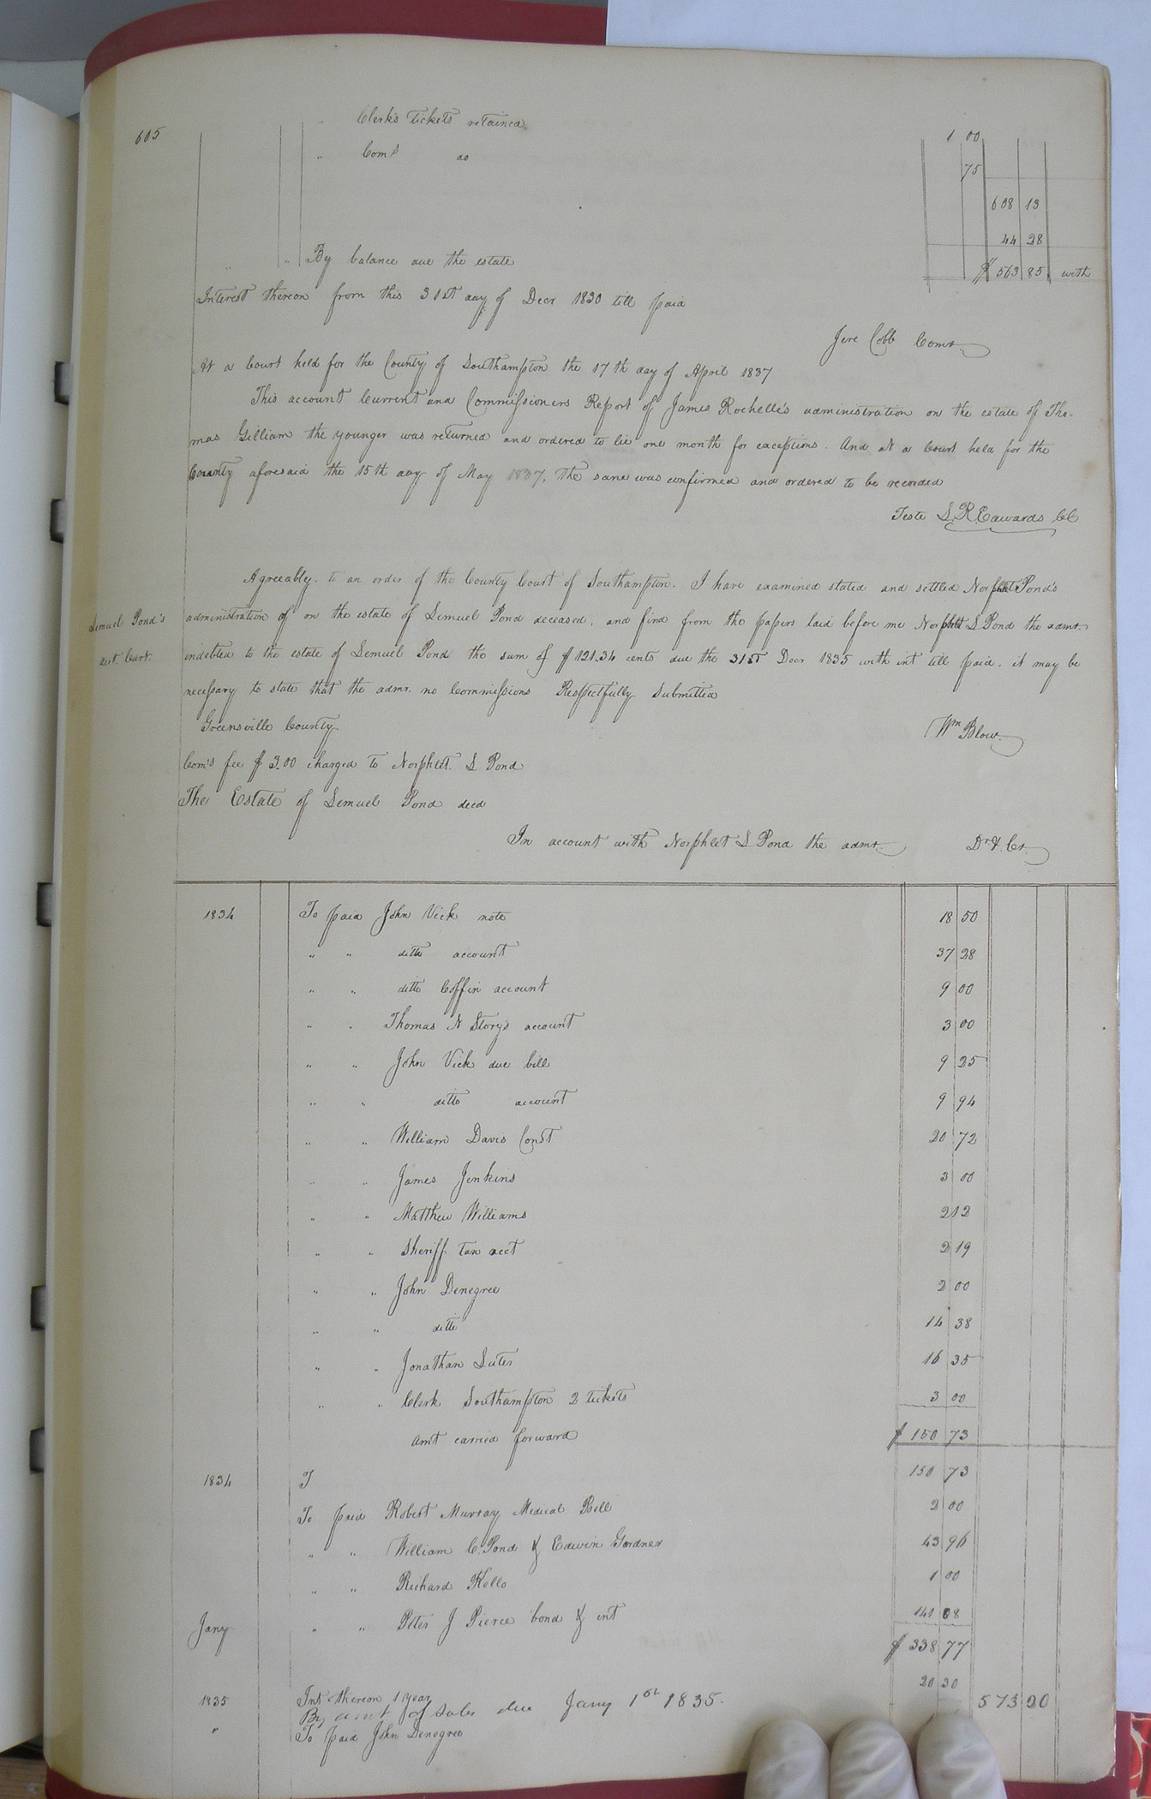 605
" Clerk's Tickets retained 1 00
" Com^s do 75
608 13
44 28
" " By balance due the estate $ 563 85 with
Interest thereon from this 31st day of Decr 1830 till paid
Jere Cobb Comr.
At a Court held for the County of Southampton the 17th day of April 1837
This account Current and Commissioners Report of James Rochelle's administration on the estate of Tho-
mas Gilliam the younger was returned and ordered to lie one month for exceptions. And At a Court held for the
County aforesaid the 15th day of May 1837, The same was confirmed and ordered to be recorded
Teste L. R. Edwards CC
Lemuel Pond's
acct. Curt.
Agreeably to an order of the County Court of Southampton. I have examined stated and settled Norphlet Pond's
administration of on the estate of Lemuel Pond deceased, and find from the papers laid before me Norphlet S Pond the admr.
indebted to the estate of Lemuel Pond the sum of $121.34 cents due the 31st Decr 1835 with int till paid. it may be
necessary to state that the admr. no Commissions Respectfully Submitted
Greensville County. Wm Blow.
Com's fee $3.00 charged to Norphlet S Pond
The Estate of Lemuel Pond decd
In account with Norphlet S Pond the admr. Dr & Cr.
1834 To paid John Vick note 18 50
" " ditto account 37 28
" " ditto Coffin account 9 00
" " Thomas N Story's account 3 00
" " John Vick due bill 9 25
" " ditto account 9 94
" " William Davis Const 20 72
" " James Jenkins 3 00
" " Matthew Williams 2 12
" " Sheriff tax acct 2 19
" " John Denegree 2 00
" " ditto 14 38
" " Jonathan Luter 16 35
" " Clerk Southampton 2 tickets 3 00
Amt carried forward $ 150 73
1834 T 150 73
To paid Robert Murray Medical Bill 2 00
" " William C. Pond & Edwin Gardner 43 96
" " Richard Kello 1 00
Jany " " Peter J Pierce bond & int 141 08
$ 338 77
Int thereon 1 year 20 30
1835 By amt of sales due Jany 1st 1835. 573 20
" To paid John Denegree